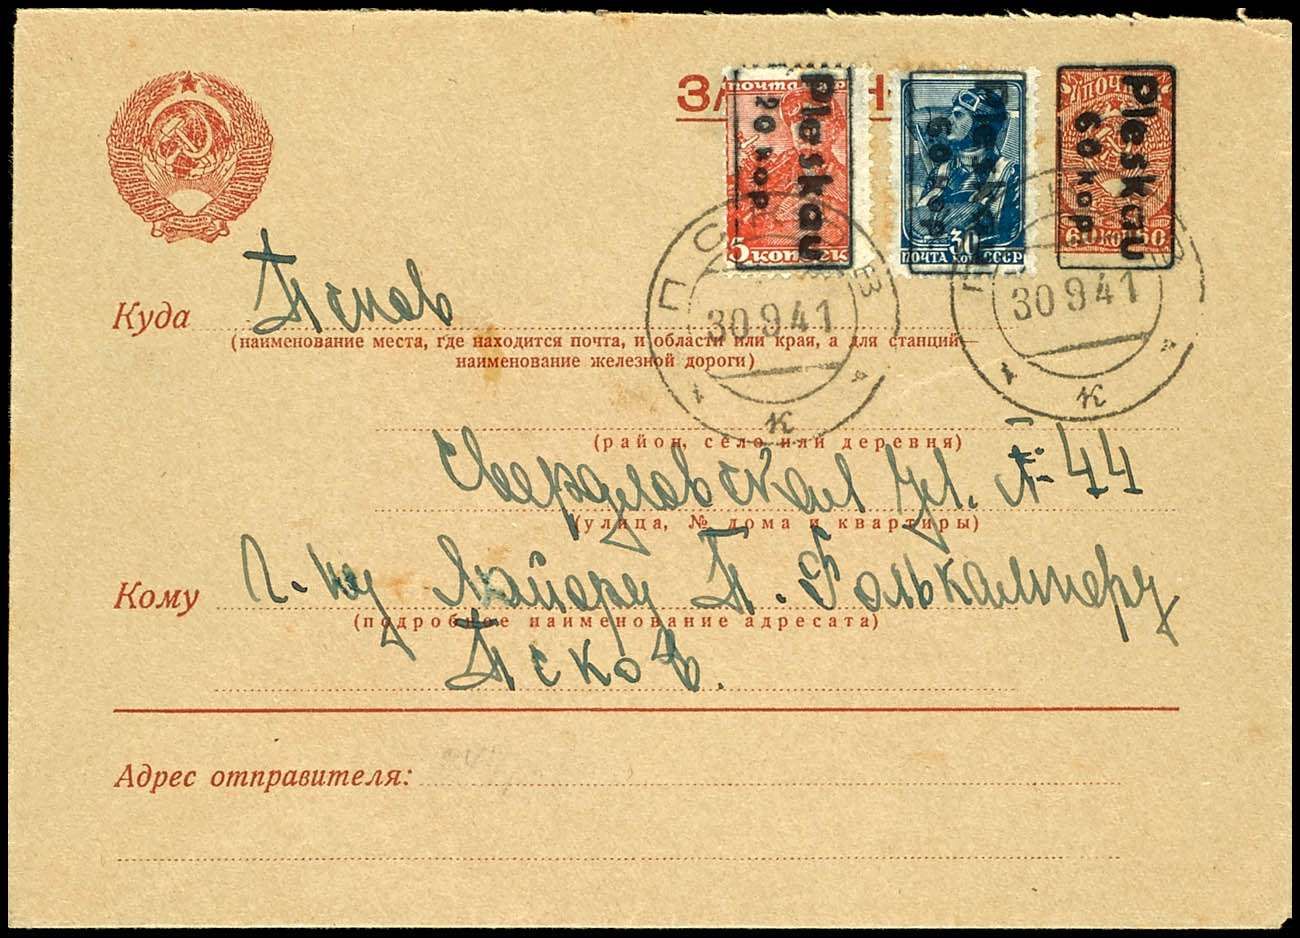 ЗА Н
почта
Pleskau
20 коп
5 копеек
Pleskau
60 коп
30
ПОЧТА коп СССР
ПОЧ
Pleskau
60 коп
60 коп 60
ПСКОВ
30 9 41
к
ПСКОВ
30 9 41
к
Куда Псков
(наименование места, где находится почта, и области или края, а для станций—
наименование железной дороги)
(район, село или деревня)
Свердловская ул. № 44
(улица, № дома и квартиры)
Кому Г-ну Майору П. Голькамперу
(подробное наименование адресата)
Псков.
Адрес отправителя: